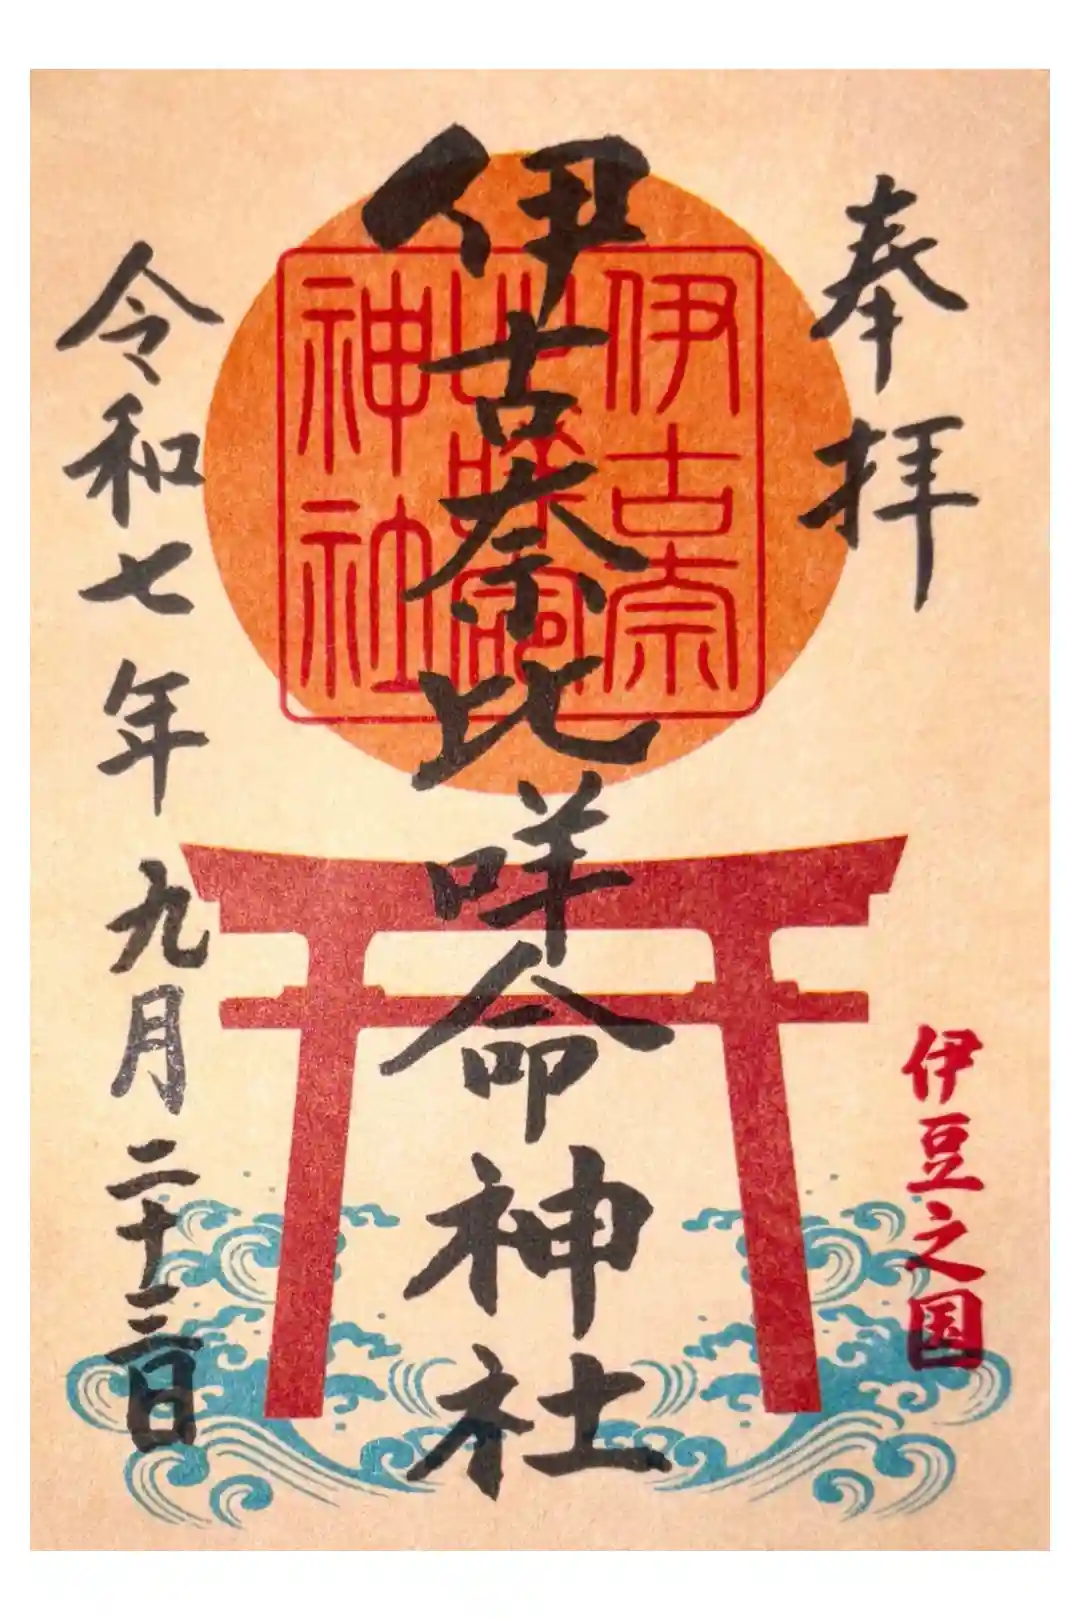 奉拝
伊豆之国
伊古奈比咩命神社
伊古奈
神社
令和七年九月二十三日